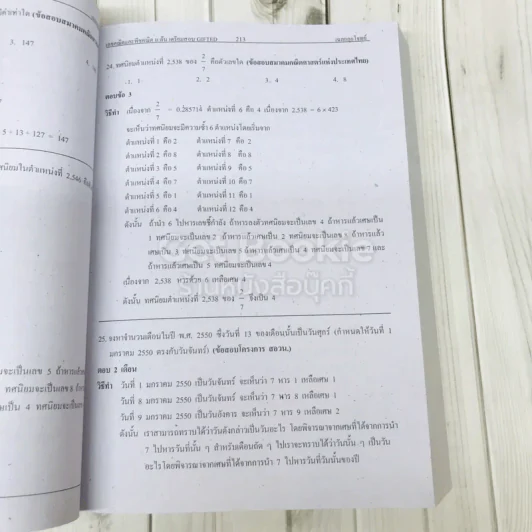 213
24. ทศนิยมตำแหน่งที่ 2,538 ของ 2/7 คือตัวเลขใด (ข้อสอบสมาคมคณิตศาสตร์แห่งประเทศไทย)
1. 1 2. 2 3. 4 4. 8
ตอบข้อ 3
วิธีทำ เนื่องจาก 2/7 = 0.285714 ตำแหน่งที่ 6 คือ 4 เนื่องจาก 2,538 = 6 × 423
จะเห็นว่าทศนิยมจะมีความซ้ำ 6 ตำแหน่งโดยเริ่มจาก
ตำแหน่งที่ 1 คือ 2 ตำแหน่งที่ 7 คือ 2
ตำแหน่งที่ 2 คือ 8 ตำแหน่งที่ 8 คือ 8
ตำแหน่งที่ 3 คือ 5 ตำแหน่งที่ 9 คือ 5
ตำแหน่งที่ 4 คือ 7 ตำแหน่งที่ 10 คือ 7
ตำแหน่งที่ 5 คือ 1 ตำแหน่งที่ 11 คือ 1
ตำแหน่งที่ 6 คือ 4 ตำแหน่งที่ 12 คือ 4
ดังนั้น ถ้านำ 6 ไปหารเลขชี้กำลัง ถ้าหารลงตัวทศนิยมจะเป็นเลข 4 ถ้าหารแล้วเศษเป็น
1 ทศนิยมจะเป็นเลข 2 ถ้าหารแล้วเศษเป็น 2 ทศนิยมจะเป็นเลข 8 ถ้าหารแล้ว
เศษเป็น 3 ทศนิยมจะเป็นเลข 5 ถ้าหารแล้วเศษเป็น 4 ทศนิยมจะเป็นเลข 7 และ
ถ้าหารแล้วเศษเป็น 5 ทศนิยมจะเป็นเลข 4
เนื่องจาก 2,538 หารด้วย 6 เหลือเศษ 4
ดังนั้น ทศนิยมตำแหน่งที่ 2,538 ของ 2/7 จึงเป็น 4
ร้านหนังสือบุ๊คกี้
25. จงหาจำนวนเดือนในปี พ.ศ. 2550 ซึ่งวันที่ 13 ของเดือนนั้นเป็นวันศุกร์ (กำหนดให้วันที่ 1
มกราคม 2550 ตรงกับวันจันทร์) (ข้อสอบโครงการ สอวน.)
ตอบ 2 เดือน
วิธีทำ วันที่ 1 มกราคม 2550 เป็นวันจันทร์ จะเห็นว่า 7 หาร 1 เหลือเศษ 1
วันที่ 8 มกราคม 2550 เป็นวันจันทร์ จะเห็นว่า 7 หาร 8 เหลือเศษ 1
วันที่ 9 มกราคม 2550 เป็นวันอังคาร จะเห็นว่า 7 หาร 9 เหลือเศษ 2
ดังนั้น เราสามารถทราบได้ว่าวันดังกล่าวเป็นวันอะไร โดยพิจารณาจากเศษที่ได้จากการนำ
7 ไปหารวันที่นั้น ๆ สำหรับเดือนถัด ๆ ไปเราจะทราบได้ว่าวันนั้น ๆ เป็นวัน
อะไรโดยพิจารณาจากเศษที่ได้จากการนำ 7 ไปหารวันที่วันนั้นของปี
3. 147
5 + 13 + 127 = 147